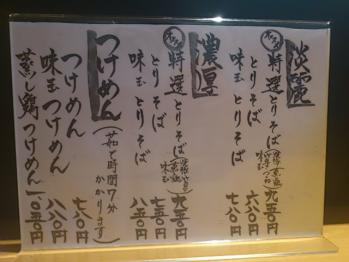 淡麗
特選とりそば 九五〇円
とりそば 六八〇円
味玉とりそば 七八〇円
濃厚
特選とりそば 九五〇円
とりそば 七五〇円
味玉とりそば 八五〇円
つけめん (茹で時間7分かかります)
つけめん 七八〇円
味玉つけめん 八八〇円
蒸し鶏つけめん 一〇五〇円